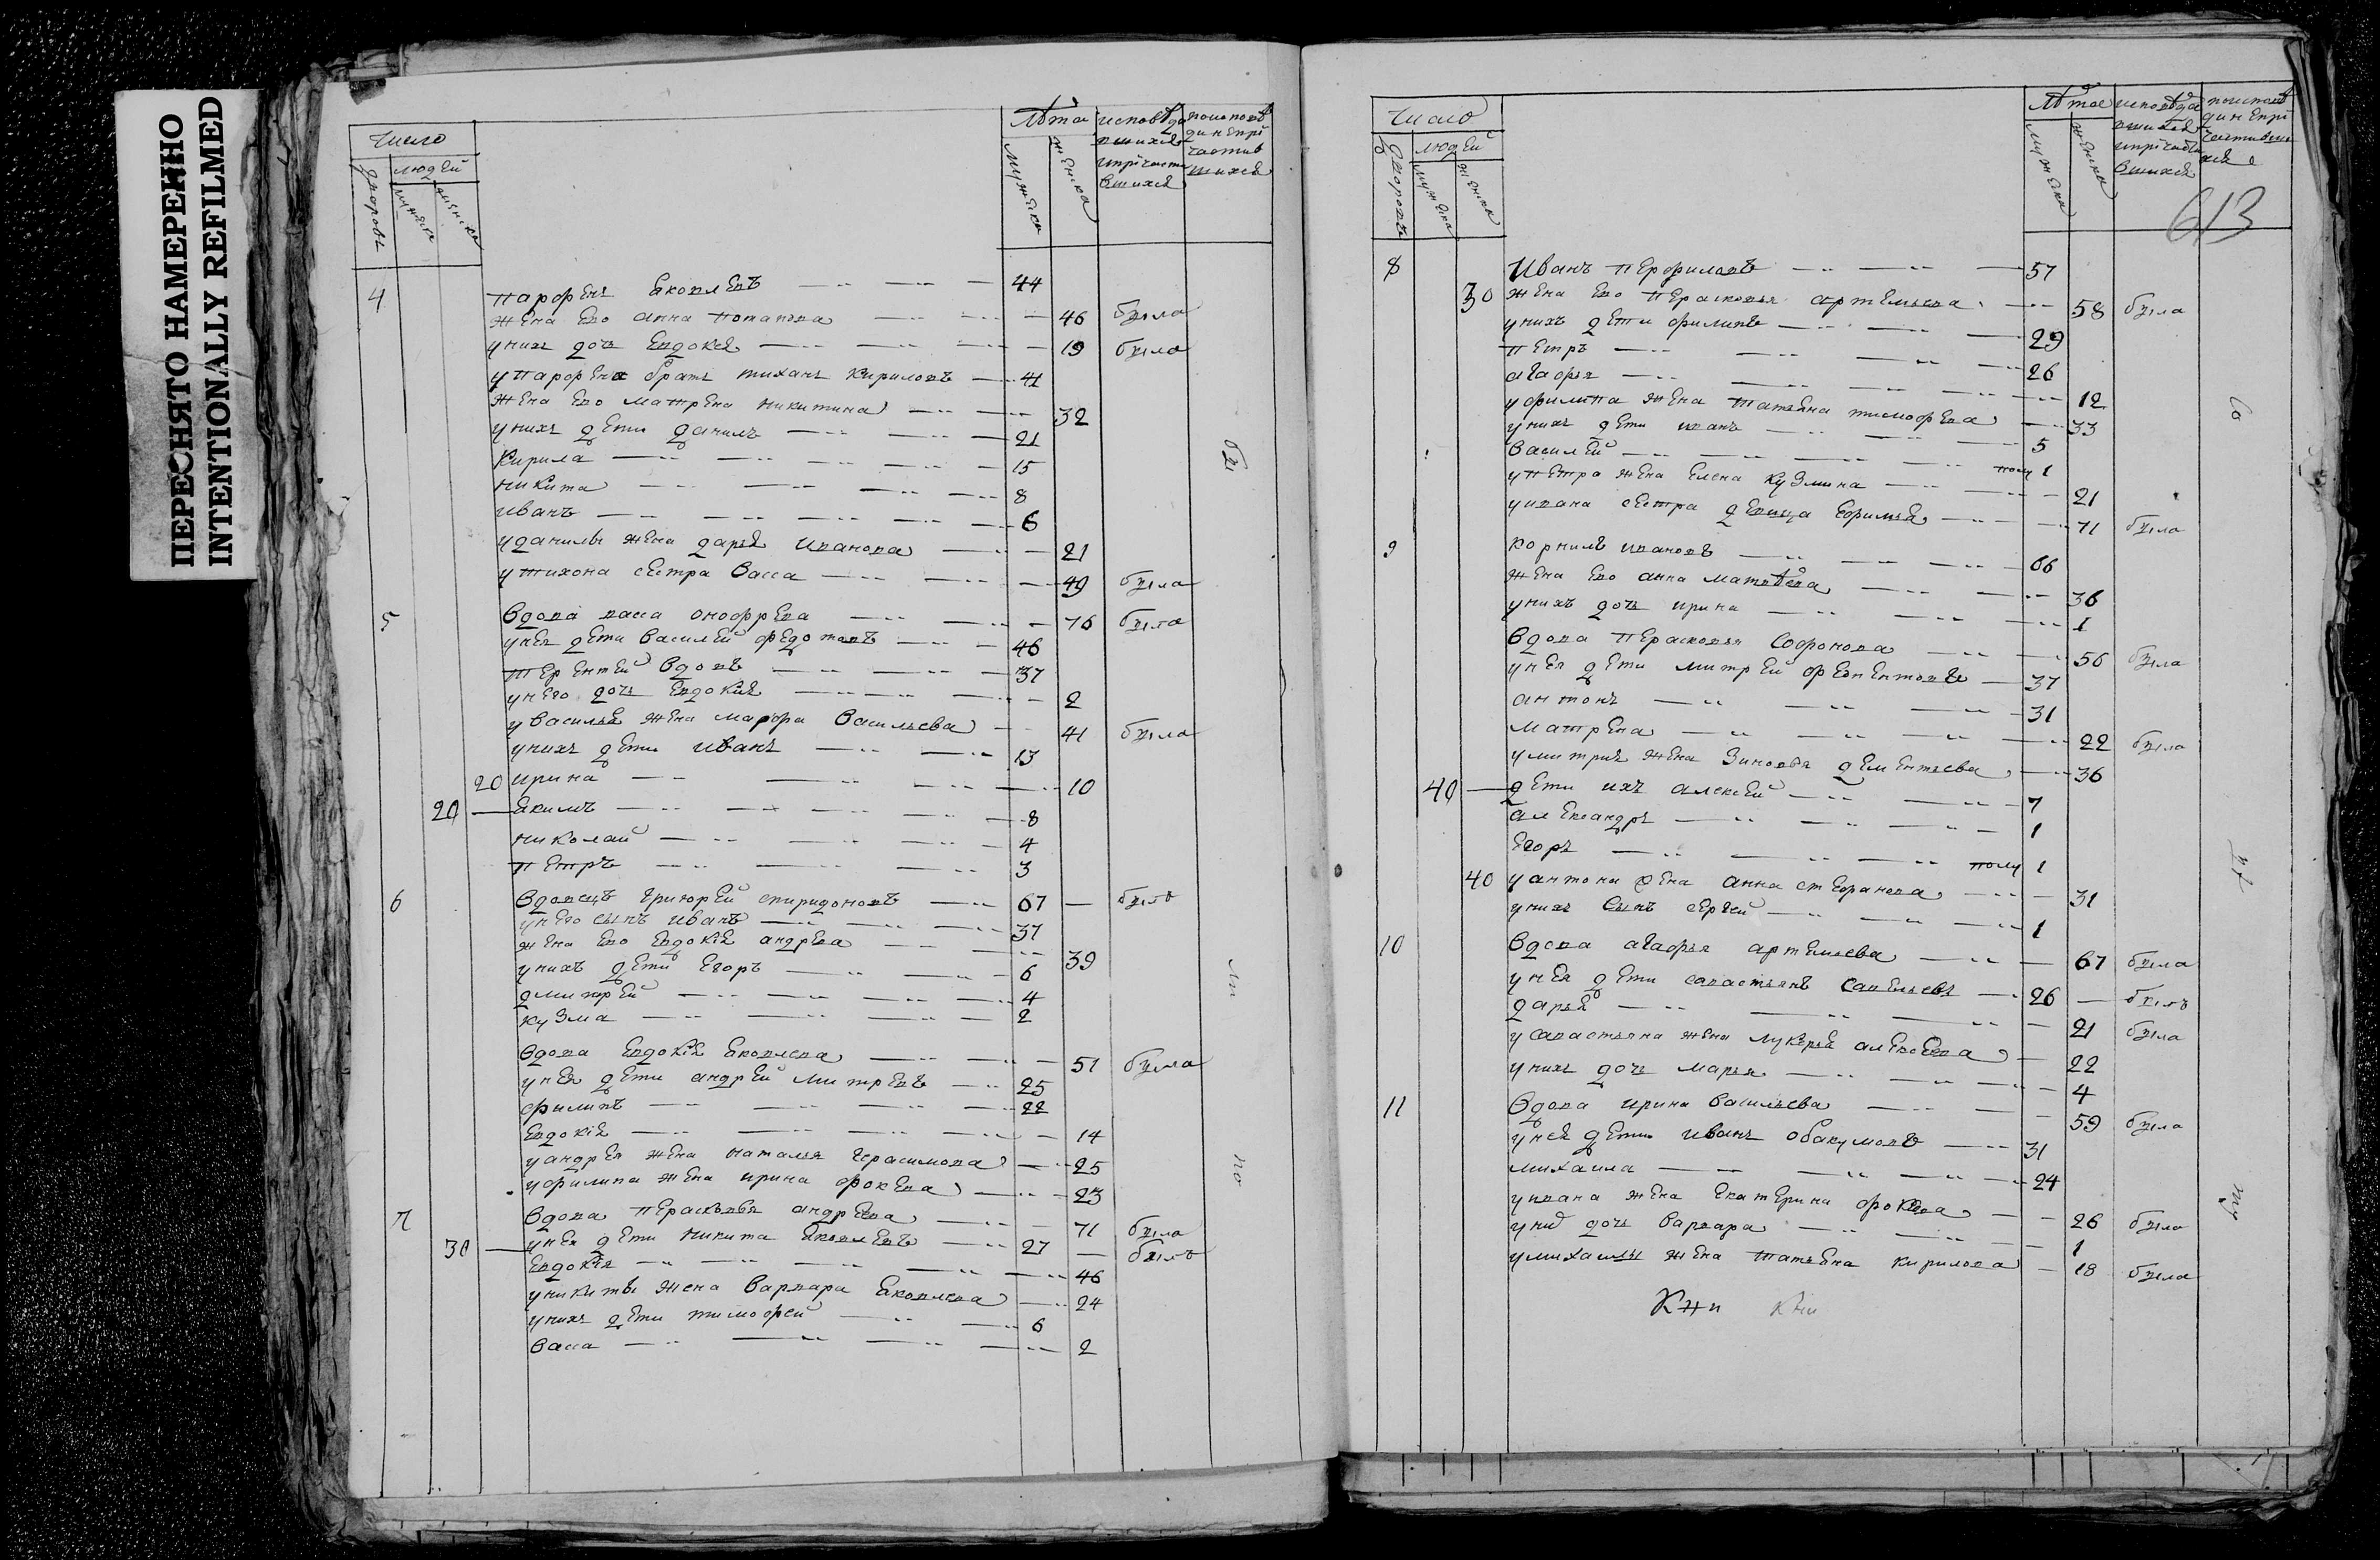 ПЕРЕСНЯТО НАМЕРЕННО
INTENTIONALLY REFILMED
Число
людей
дворовъ
мужеска
женска
Лѣта
мужеска
женска
исповѣдавшихся и причастившихся
4 парфенъ Яковлевъ 44
жена Ево анна потапова 46 была
унихъ дочь Евдокея 19 была
упарфена братъ тиханъ Кириловъ 41
жена Ево матрена никитина 32
унихъ дети данилъ 21
Кирила 15
никита 8
иванъ 6
уданилы жена дарья иванова 21
утихона сестра васса 49 была
5 вдова васса онофрева 76 была
унея дети василей федотовъ 46
терентей вдовъ 37
унего дочь Евдокия 2
увасилья жена марфа васильева 41 была
унихъ дети иванъ 13
20 ирина 10
20 Якимъ 8
николай 4
петръ 3
6 вдовецъ григорей спиридоновъ 67 былъ
унего сынъ иванъ 37
жена Ево Евдокія андрева 39
унихъ дети Егоръ 6
дмитрей 4
кузма 2
вдова Евдокія Яковлева 51 была
унея дети андрей митревъ 25
филипъ 22
Евдокія 14
уандрея жена наталья герасимова 25
уфилипа жена ирина фокева 23
7 вдова перасковья андрева 71 была
30 унея дети никита Яковлевъ 27 былъ
Евдокія 46
уникиты жена варвара Яковлева 24
унихъ дети тимофей 6
васса 2
бы
ли
по
Число
людей
дворовъ
мужеска
женска
Лѣта
мужеска
женска
613
8 Иванъ перфиловъ 57
30 жена Ево перасковья артемьева 58 была
унихъ дети филипъ 29
петръ 26
агафья 12
уфилипа жена татьяна тимофева 33
унихъ дети иванъ 5
василей полу 1
упетра жена Елена кузмина 21
уивана сестра девица Ефимья 71 была
9 корнилъ ивановъ 66
жена Ево анна матвѣева 36
унихъ дочь ирина 1
вдова перасковья софронова 56 была
унея дети митрей 37
антонъ 31
матрена 22 была
умитрия жена Зиновья дементьева 36
40 дети ихъ алексей 7
александръ 1
Егоръ полу 1
40 уантона жена анна стефанова 31
унихъ сынъ сергей 1
10 вдова агафья артемьева 67 была
унея дети савастьянъ савельевъ 26 былъ
дарья 21 была
усавастьяна жена лукерья алексеева 22
унихъ дочь марья 4
11 вдова ирина васильева 59 была
унея дети иванъ абакумовъ 31
михаила 24
уивана жена Екатерина фокеева 26 была
унихъ дочь варвара 1
умихаилы жена татьяна кирилова 18 была